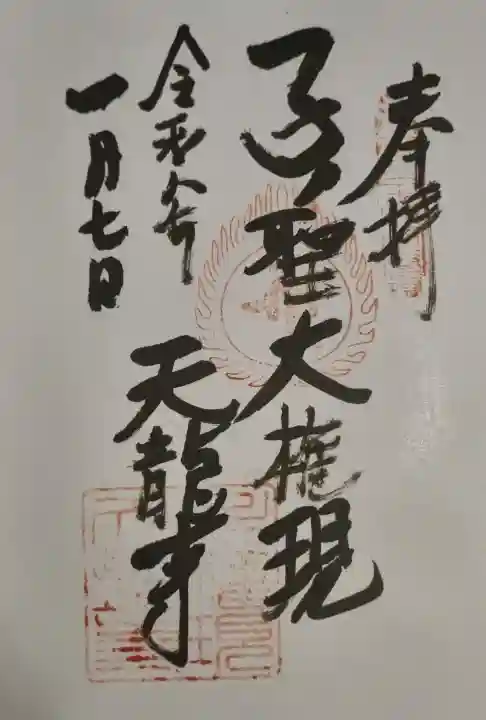 奉拝
子聖大権現
天龍寺
令和六年
一月七日